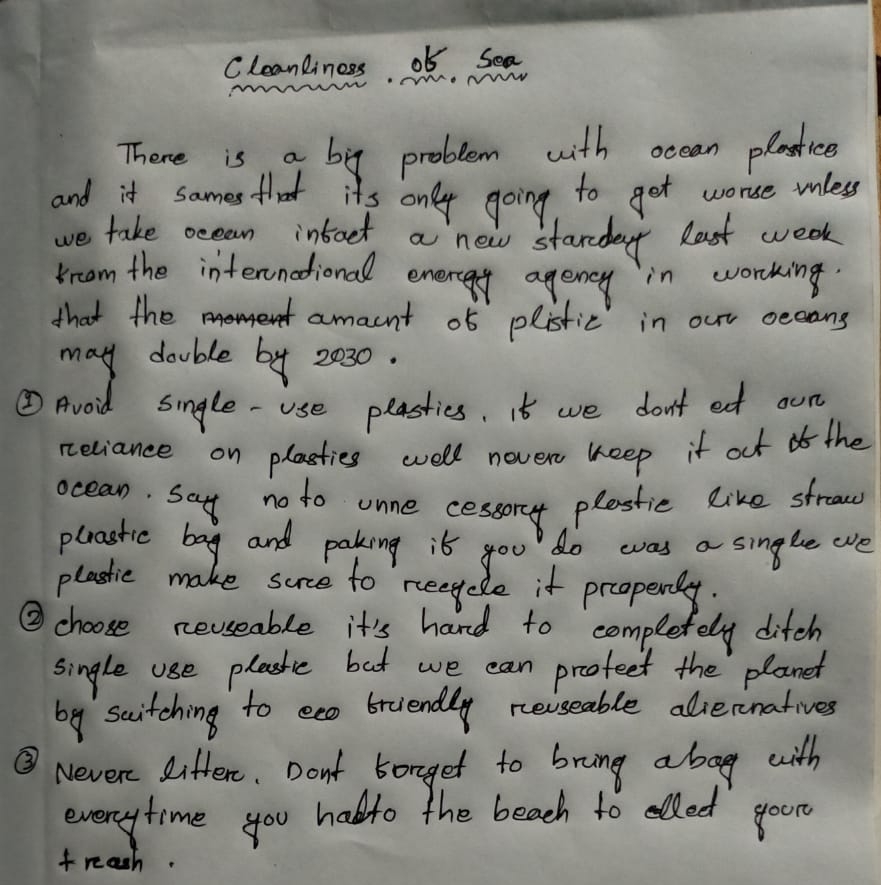 Cleanliness of Sea
There is a big problem with ocean plastics
and it sames that its only going to get worse unless
we take ocean intact a new stardey last week
from the international energy agency in working.
that the moment amount of plistic in our oceans
may double by 2030.
① Avoid single-use plastics, if we dont cut our
reliance on plastics well never keep it out of the
ocean. Say no to unne cessory plastic like straw
plastic bag and paking if you do was a single we
plastic make sure to recycle it properly.
② choose reuseable it's hard to completely ditch
single use plastic but we can protect the planet
by switching to eco friendly reuseable alternatives
③ Never litter. Dont forget to bring a bag with
everytime you to the beach to your
trash.